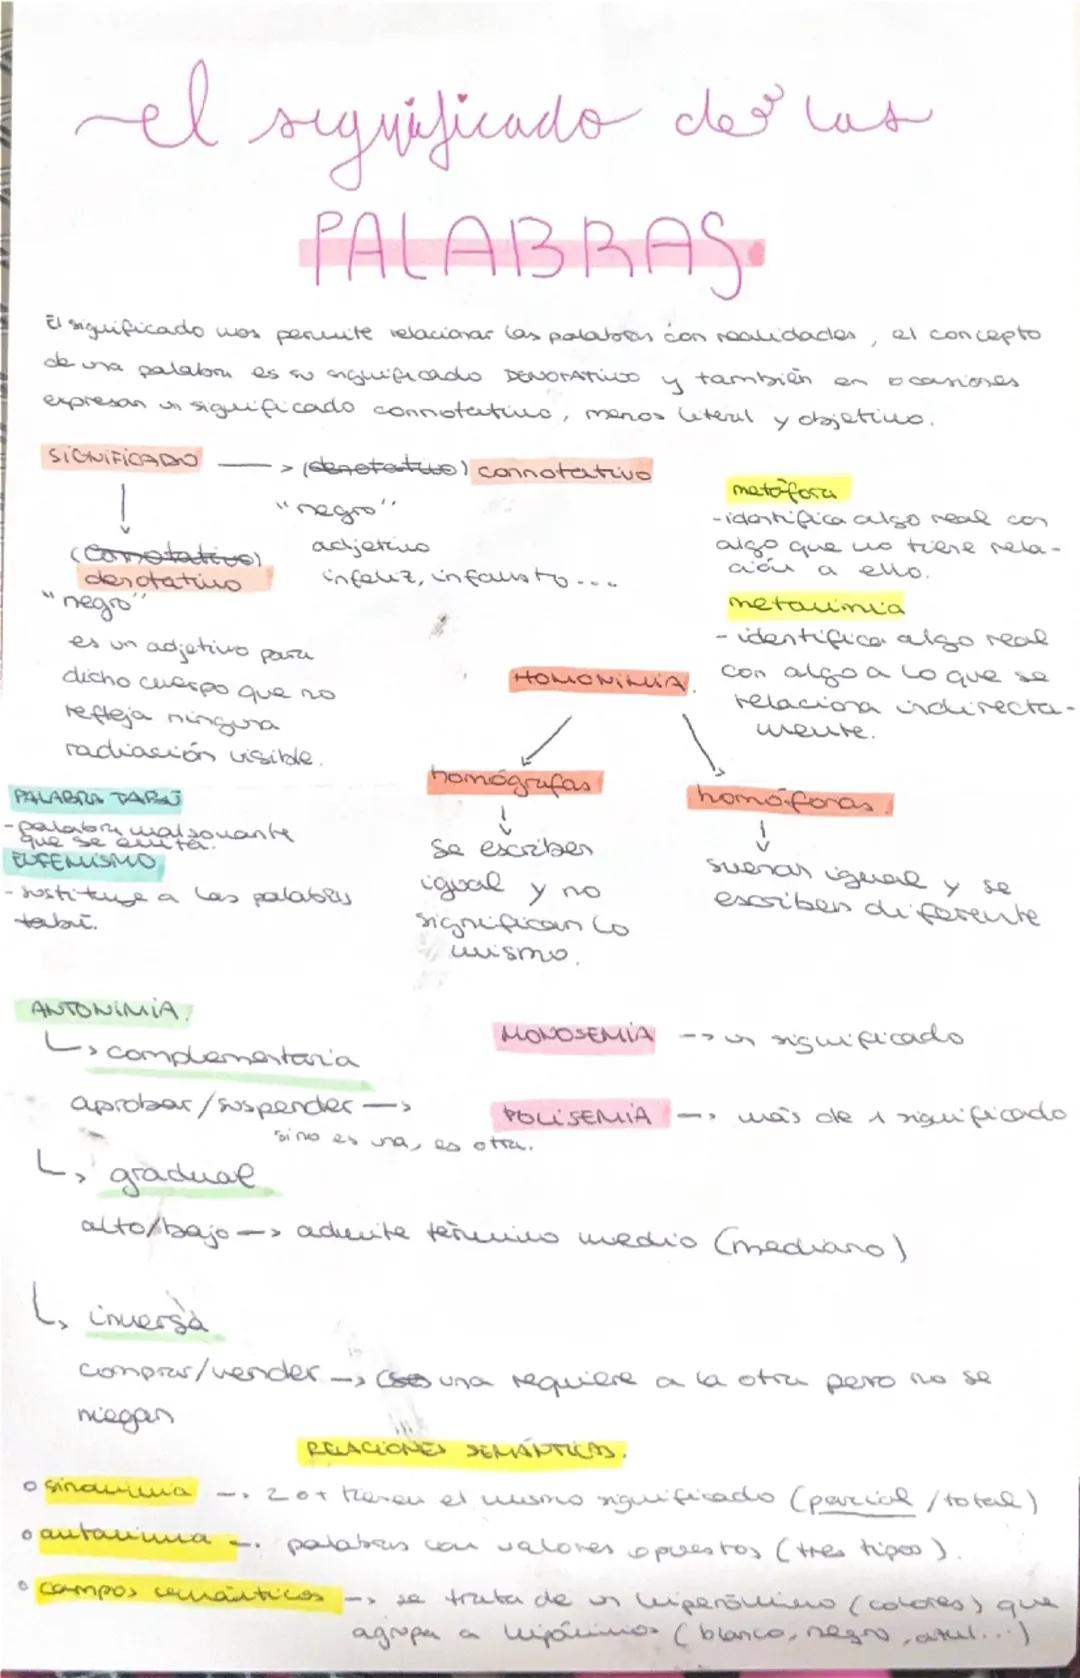 el significado de las
PALABRAS.
El significado nos permite relacionar las palabras con realidades, el concepto
de una palabra es su significado DENOTATIVO y también en ocasiones
expresan un significado connotativo, menos literal y objetivo.
SIGNIFICADO -> (denotativo) connotativo
"negro"
adjetivo
infeliz, infausto...
(connotativo)
denotativo
"negro"
es un adjetivo para
dicho cuerpo que no
refleja ninguna
radiación visible.
metáfora
- identifica algo real con
algo que no tiene rela-
ción a ello.
metonimia
- identifica algo real
con algo a lo que se
relaciona indirecta-
mente.
HOMONIMIA.
homógrafas
se escriben
igual y no
significan lo
mismo.
homófonas.
suenan igual y se
escriben diferente
PALABRA TABÚ
- palabra malsonante
que se evita.
EUFEMISMO
- sustituye a las palabras
tabú.
ANTONIMIA.
complementaria
aprobar/suspender ->
si no es una, es otra.
gradual
alto/bajo -> admite término medio (mediano)
inversa
comprar/vender -> una requiere a la otra pero no se
niegan
MONOSEMIA --> un significado
POLISEMIA -> más de 1 significado
RELACIONES SEMÁNTICAS.
sinonimia -> 2 o + tienen el mismo significado (parcial/total)
antonimia -> palabras con valores opuestos (tres tipos).
campos semánticos -> se trata de un hiperónimo (colores) que
agrupa a hipónimos (blanco, negro, azul...)